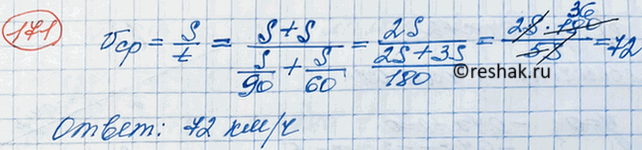 171 υср = S/t = (S+S)/(S/90 + S/60) = 2S/((2S+3S)/180) = (2S·180)/(5S) = 72
36
©reshak.ru
Ответ: 72 км/ч